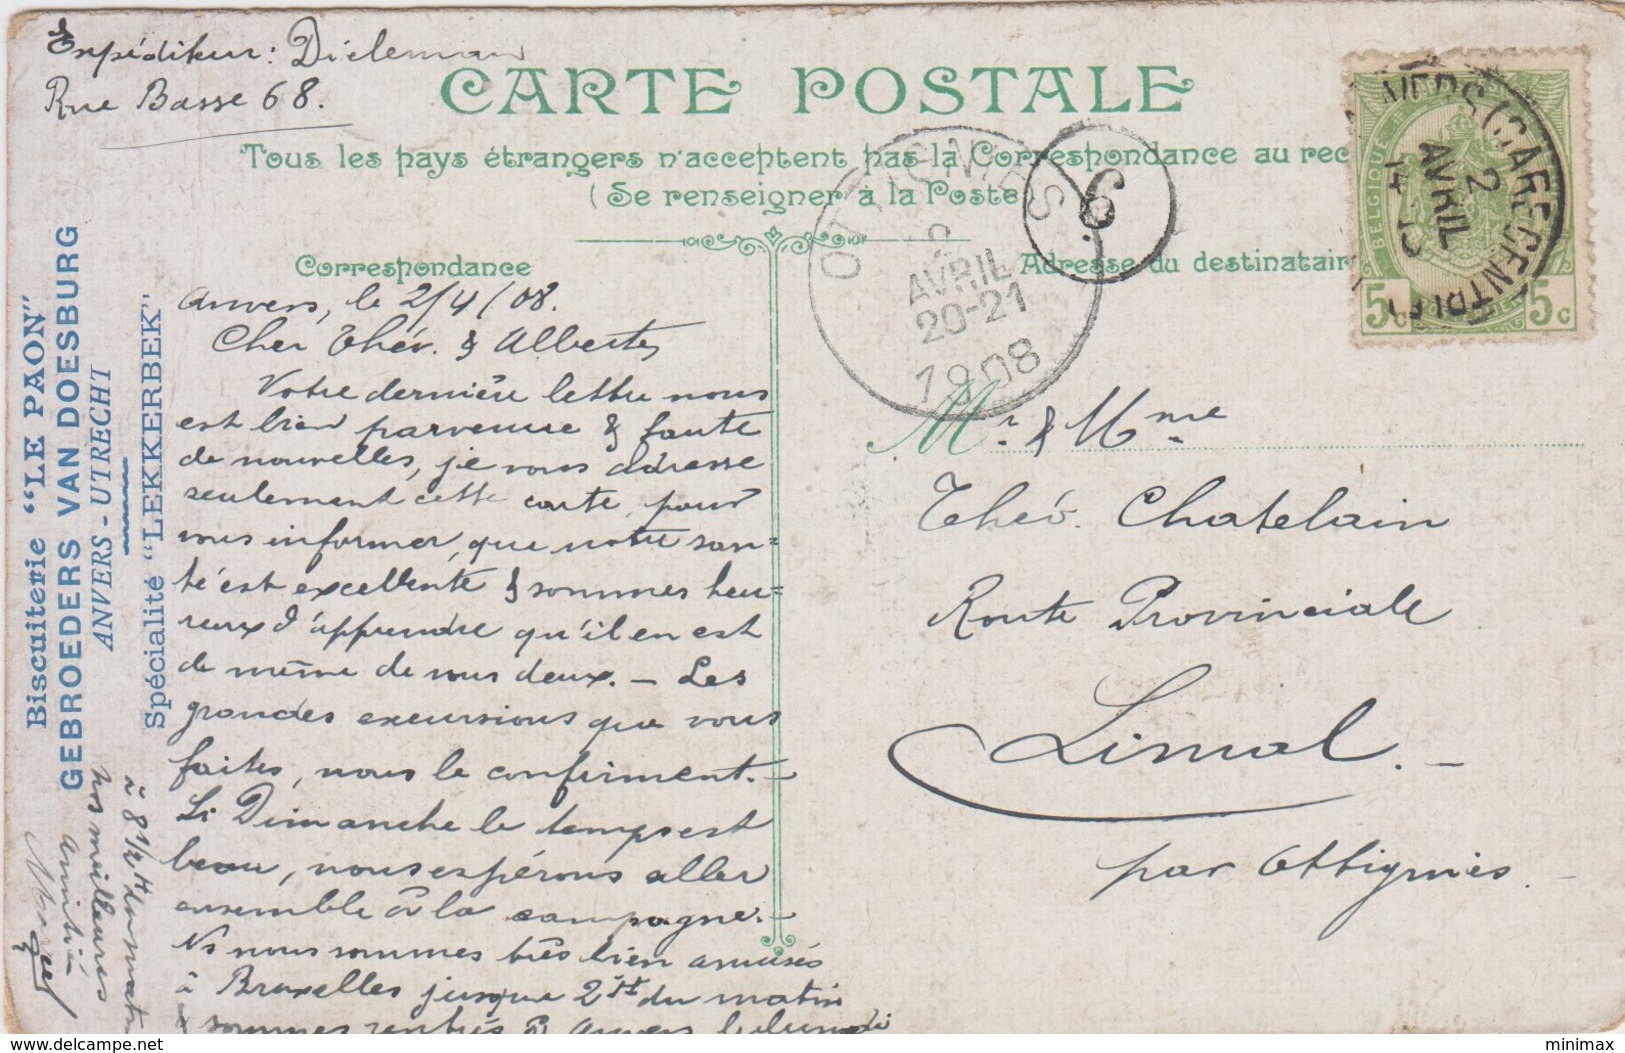 Expéditeur: Dieleman
Rue Basse 68.
CARTE POSTALE
Tous les pays étrangers n'acceptent pas la Correspondance au rec
(Se renseigner à la Poste
Correspondance
Adresse du destinatair
Anvers, le 2/4/08.
Cher Thév. & Alberte,
Votre dernière lettre nous
est bien parvenue & faute
de nouvelles, je vous adresse
seulement cette carte, pour
vous informer, que notre san=
té est excellente & sommes heu=
reux d'apprendre qu'il en est
de même de vous deux. — Les
grandes excursions que vous
faites, nous le confirment. —
Si Dimanche le temps est
beau, nous espérons aller
ensemble à la campagne. —
Ns nous sommes très bien amusés
à Bruxelles jusque 2 H du matin
& sommes rentrés à Anvers le lundi
à 8 1/2 H du matin
nos meilleures
amitiés
Biscuiterie "LE PAON"
GEBROEDERS VAN DOESBURG
ANVERS - UTRECHT
Spécialité "LEKKERBEK"
OTTIGNIES
2
AVRIL
20-21
1908
6
ANVERS (GARE CENTRALE)
2
AVRIL
14
BELGIQUE
5c 5c
Mr. & Mme
Thév. Chatelain
Route Provinciale
Limal. —
par Ottignies.
www.delcampe.net
minimax